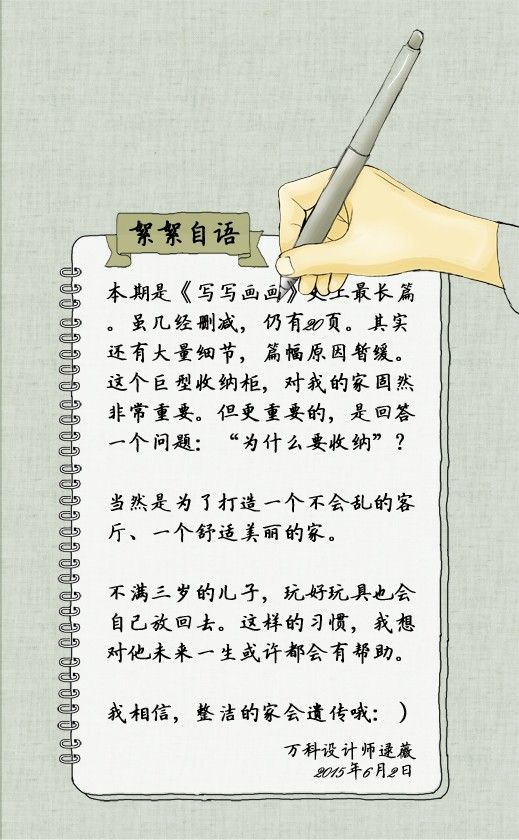 絮絮自语
本期是《写写画画》史上最长篇
。虽几经删减，仍有20页。其实
还有大量细节，篇幅原因暂缓。
这个巨型收纳柜，对我的家固然
非常重要。但更重要的，是回答
一个问题：“为什么要收纳”？
当然是为了打造一个不会乱的客
厅、一个舒适美丽的家。
不满三岁的儿子，玩好玩具也会
自己放回去。这样的习惯，我想
对他未来一生或许都会有帮助。
我相信，整洁的家会遗传哦：）
万科设计师逯薇
2015年6月2日